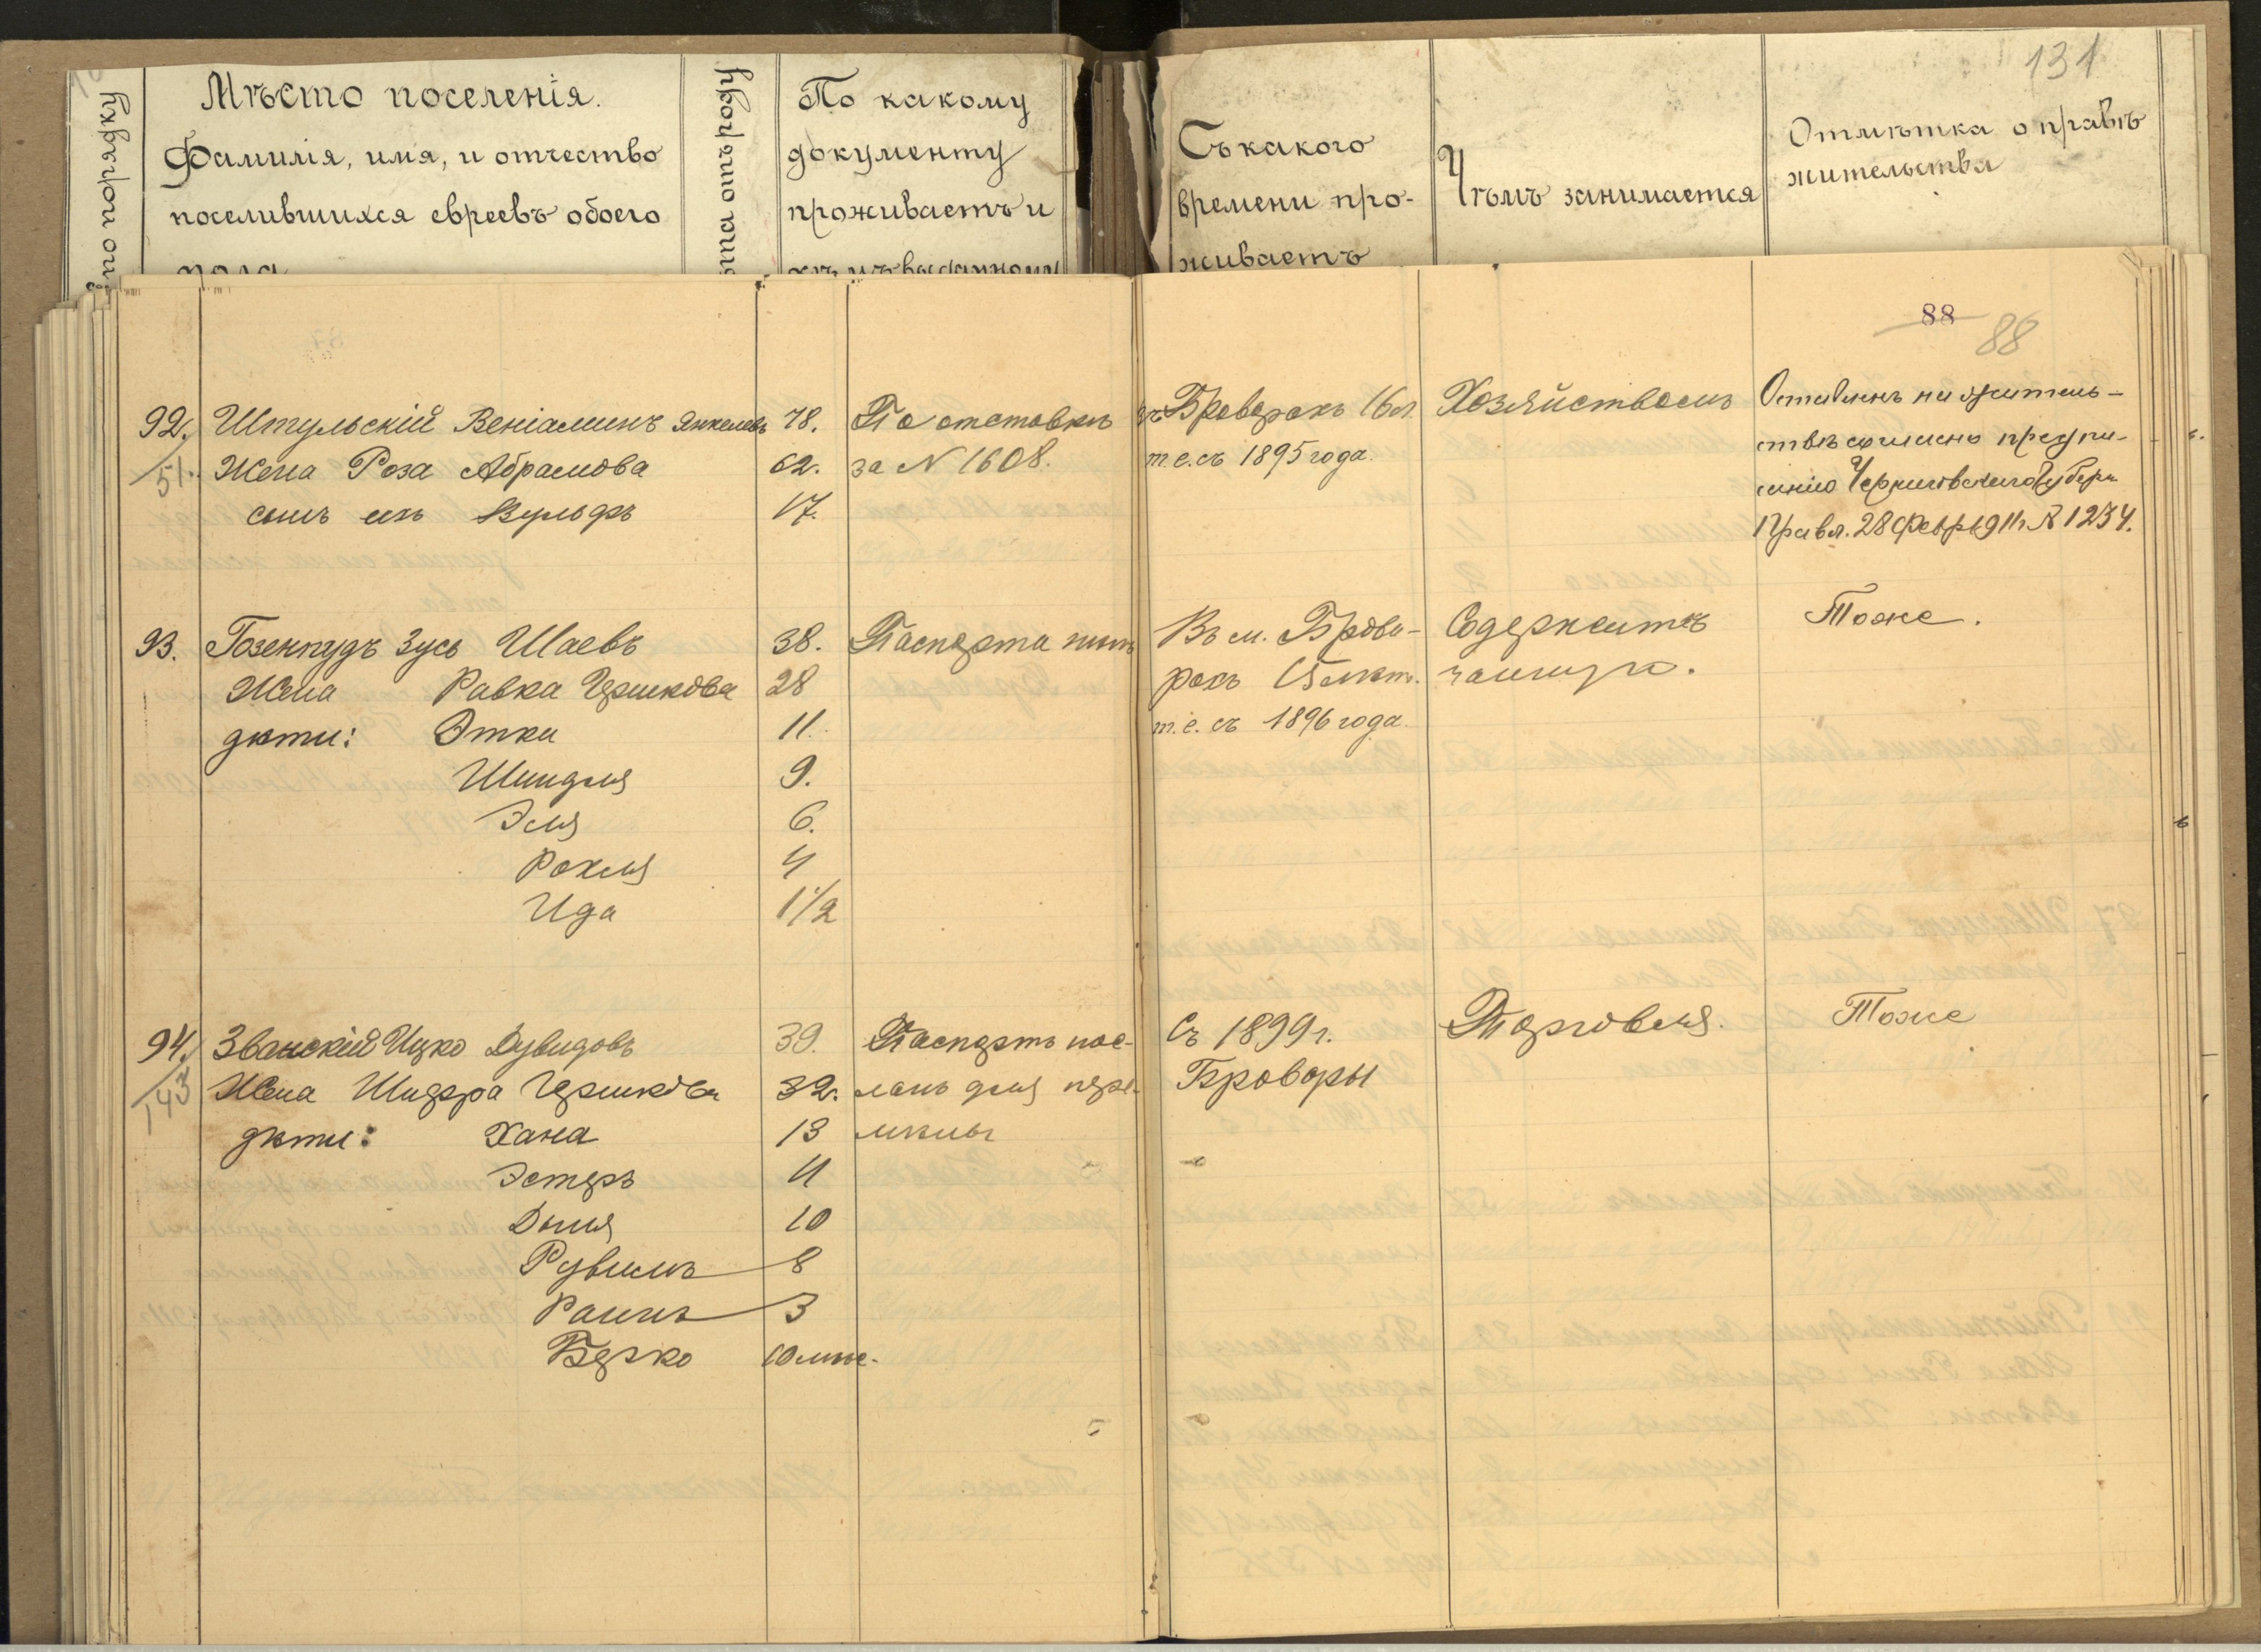 131
№ по порядку
Мѣсто поселенія.
Фамилія, имя, и отчество
поселившихся евреевъ обоего
пола
лѣта отъ роду
По какому
документу
проживаетъ и
кѣмъ выданному
Съ какого
времени про-
живаетъ
Чѣмъ занимается
Отмѣтка о правѣ
жительства
88
88
92. Штульскій Веніаминъ Янкелевъ 78. По отставкѣ въ Броварахъ 16 л. Хозяйствомъ Оставленъ на житель-
51. Жена Роза Абрамова 62. за N 1608. т.е. съ 1895 года. ствѣ согласно предпи-
сынъ ихъ Вульфъ 17. санію Черниговскаго Губерн.
Правл. 28 Февр. 1911 г. № 1234.
93. Гозенпудъ Зусь Шаевъ 38. Паспорта нѣтъ Въ м. Брова- Содержитъ Тоже.
Жена Равка Гершкова 28 рахъ 15 лѣт. чайную.
дѣти: Этка 11. т.е. съ 1896 года.
Шиндля 9.
Эля 6.
Рохля 4
Ида 1 1/2
94. Званскій Ицко Дувидовъ 39. Паспортъ пос- Съ 1899 г. Торговля. Тоже
143 Жена Шифра Гершкова 32. ланъ для пере- Бровары
дѣти: Хана 13 мѣны
Эстеръ 11
Дыня 10
Рувимъ 8
3
Берко 10 мѣс.